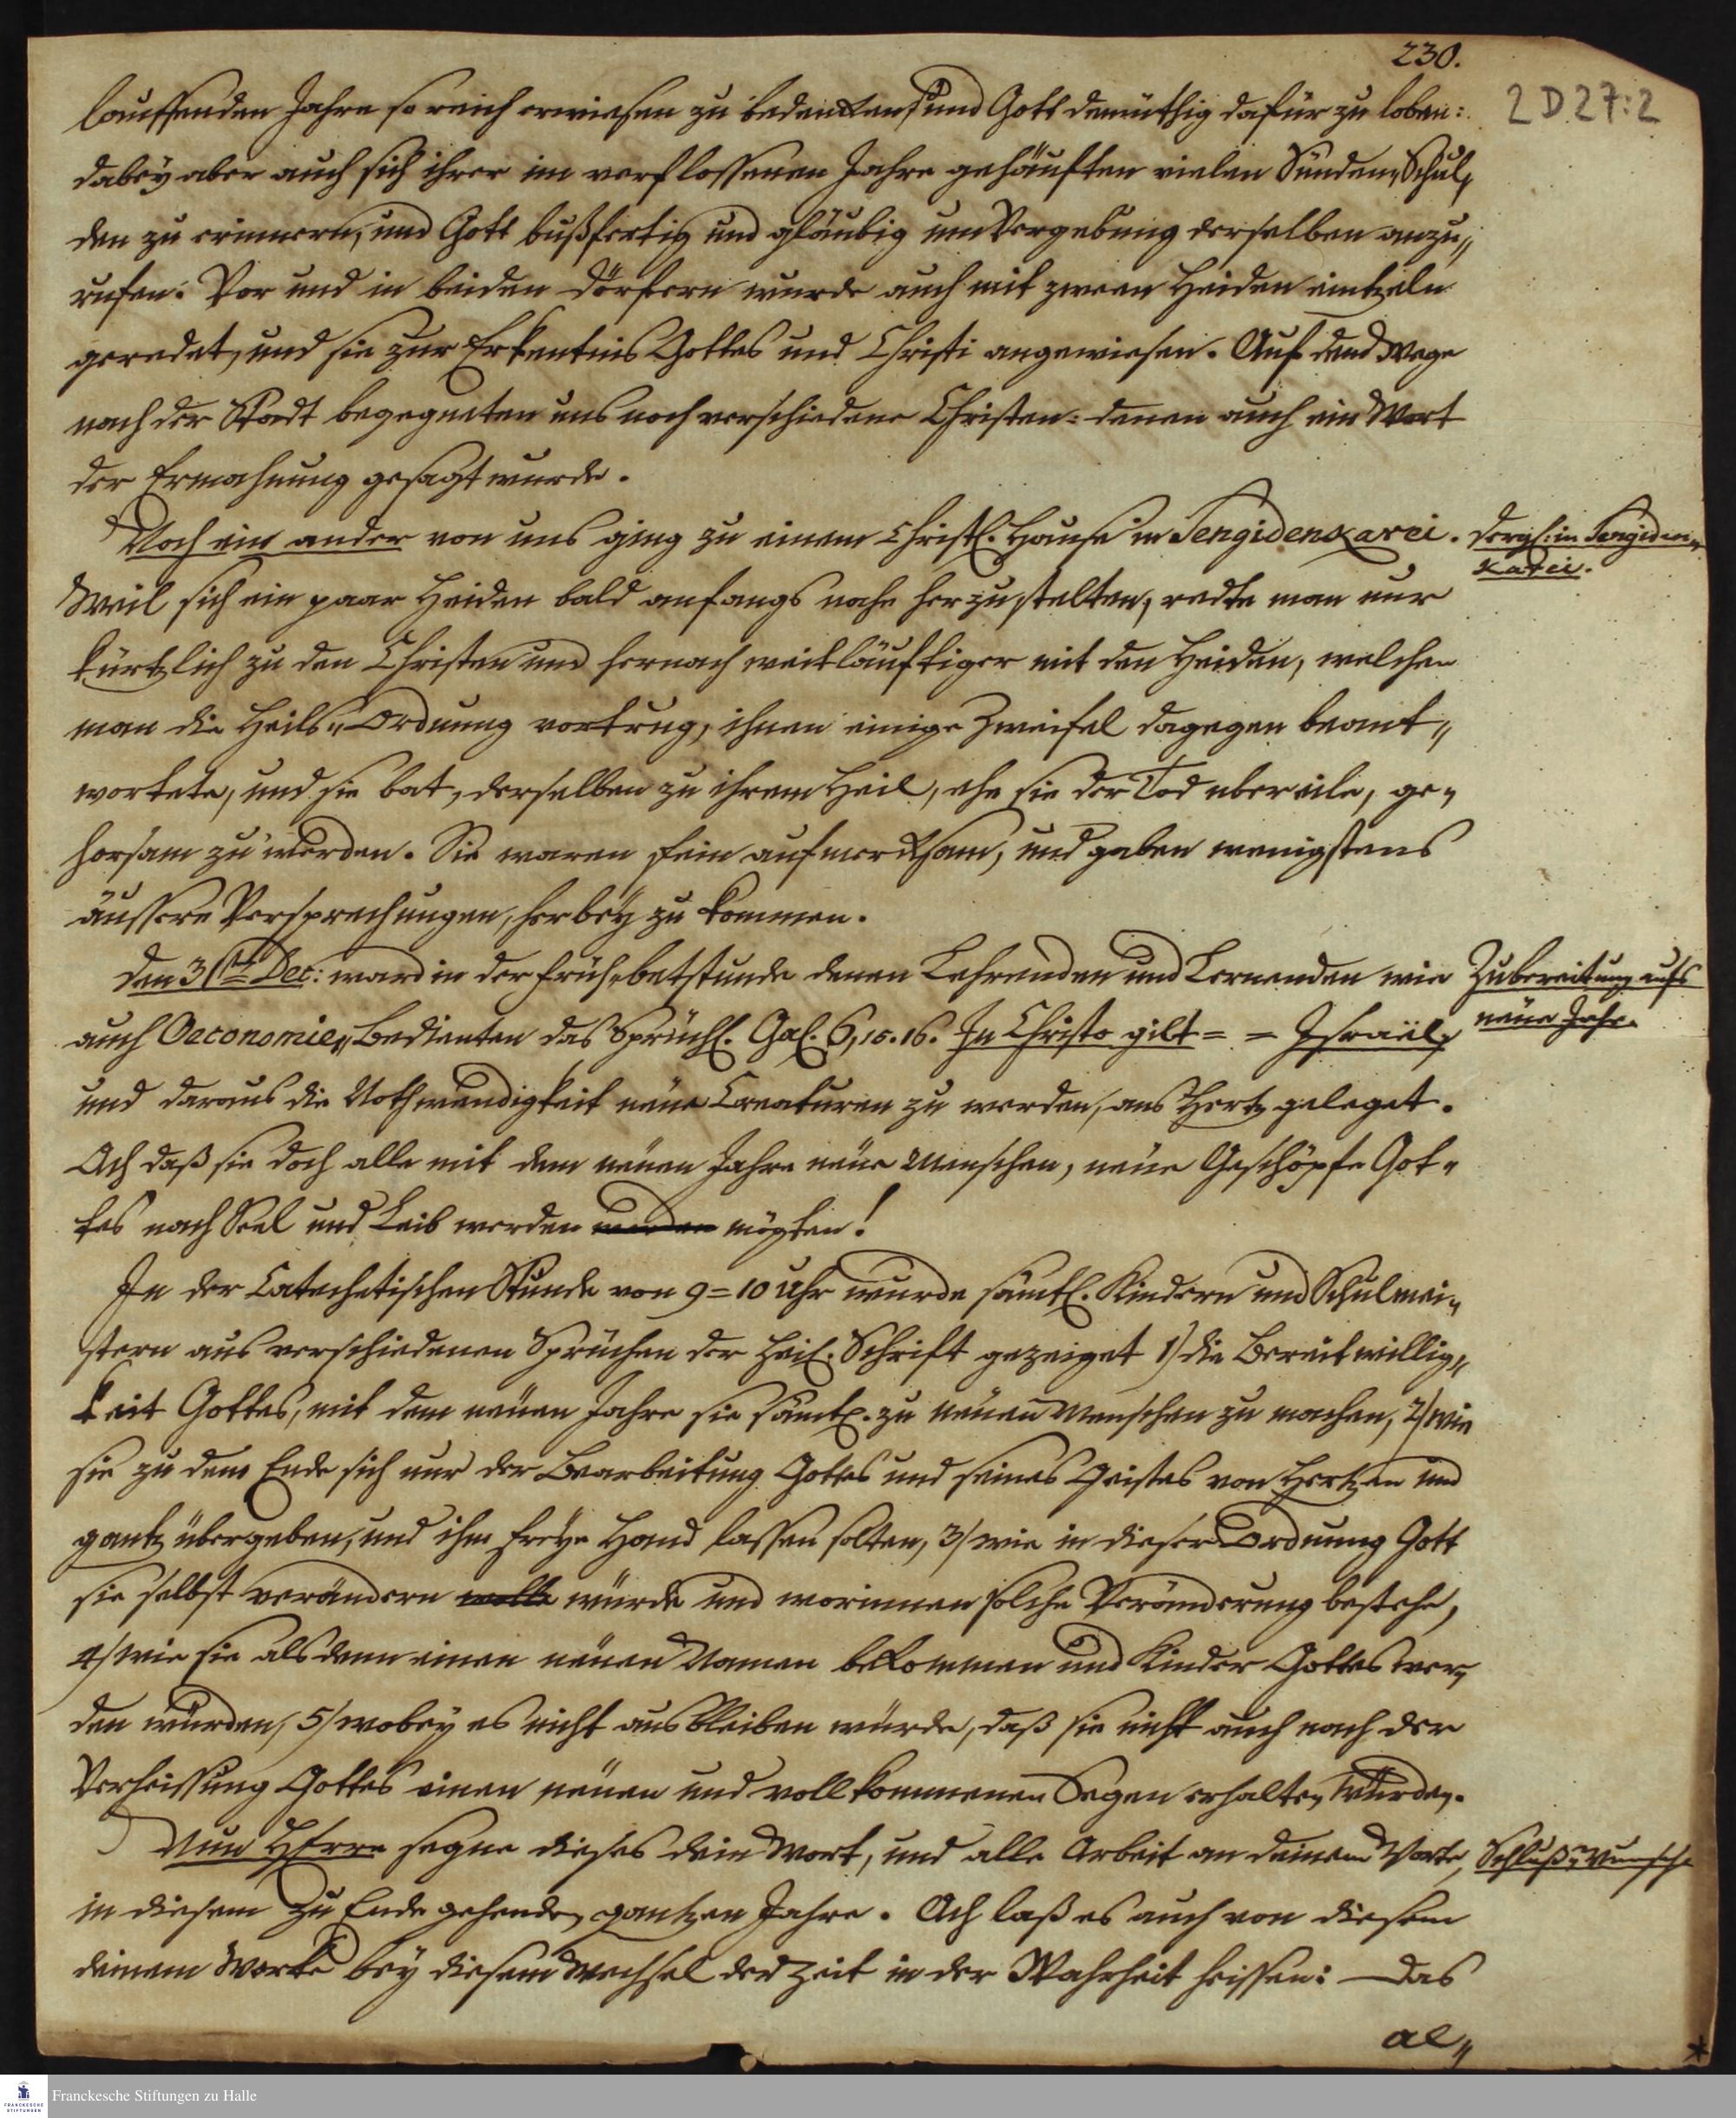 230.
2 D 27:2
lauffenden Jahre so reich erwiesen zu bedencken, und Gott demüthig dafür zu loben:
dabey aber auch sich ihrer im verflossenen Jahre gehäuften vielen Sünden-Schul-
den zu erinnern, und Gott bußfertig und gläubig um Vergebung derselben anzu-
rufen. Vor und in beiden Dörfern wurde auch mit zween Heiden eintzeln
geredet, und sie zur Erkentnis Gottes und Christi angewiesen. Auf dem Wege
nach der Stadt begegneten uns noch verschiedene Christen: denen auch ein Wort
der Ermahnung gesagt wurde.
Noch ein ander von uns ging zu einem Christl. Hause in Tengidenkarei.
Dergl. in Tengiden-
karei.
Weil sich ein paar Heiden bald anfangs nahe herzu stelten, redte man nur
kürtzlich zu den Christen und hernach weitläuftiger mit den Heiden, welchen
man die Heils-Ordnung vortrug, ihnen einige Zweifel dagegen beant-
wortete, und sie bat, derselben zu ihrem Heil, ehe sie der Tod übereile, ge-
horsam zu werden. Sie waren fein aufmercksam, und gaben wenigstens
äussere Versprechungen, herbey zu kommen.
Den 31ten Dec: ward in der Früh-betstunde denen Lehrenden und Lernenden wie
Zubereitung aufs
neue Jahr.
auch Oeconomie-Bedienten das Sprüchl. Gal. 6, 15. 16. In Christo gilt = = Israël,
und daraus die Nothwendigkeit neue Creaturen zu werden, ans Hertz geleget.
Ach daß sie doch alle mit dem neuen Jahre neue Menschen, neue Geschöpfe Got-
tes nach Seel und Leib werden werden mögten!
In der Catechetischen Stunde von 9=10 Uhr wurde sämtl. Kindern und Schulmei-
stern aus verschiedenen Sprüchen der Heil. Schrift gezeiget 1) die Bereitwillig-
keit Gottes, mit dem neuen Jahre sie sämtl. zu neuen Menschen zu machen, 2) wie
sie zu dem Ende sich nur der Bearbeitung Gottes und seines Geistes von Hertzen und
gantz übergeben, und ihm freye Hand lassen solten, 3) wie in dieser Ordnung Gott
sie selbst verändern wolle würde und worinnen solche Veränderung bestehe,
4) wie sie alsdenn einen neuen Namen bekommen und Kinder Gottes wer-
den würden, 5) wobey es nicht ausbleiben würde, daß sie nicht auch nach der
Verheissung Gottes einen neuen und vollkommenen Segen erhalten würden.
Nun HErr segne dieses dein Wort, und alle Arbeit an deinem Worte,
Schluß-Wunsch
in diesem zu Ende gehenden gantzen Jahre. Ach laß es auch von diesem
deinem Wercke bey diesem Wechsel der Zeit in der Wahrheit heissen: Das
al-
Franckesche Stiftungen zu Halle